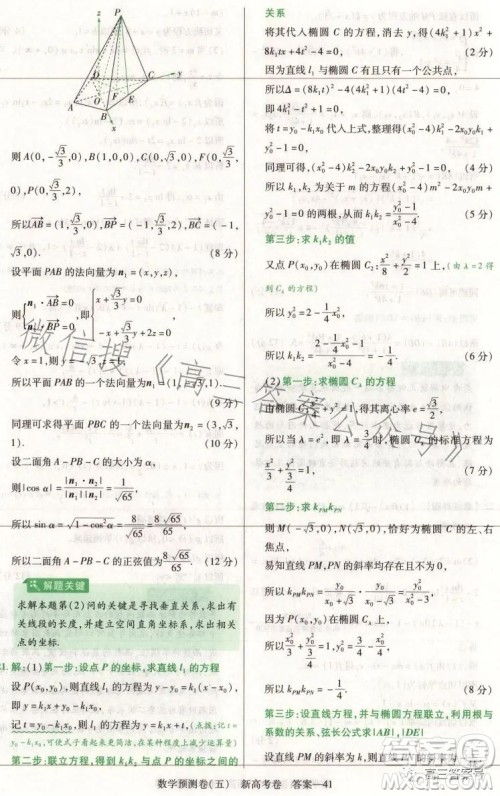 则A(0,-√3,0),B(1,0,0),C(0,√3,0),
所以AB=(1,√3,0),BP=(-1,√3/3,2),BC=(-1,
√3,0). (8分)
设平面PAB的法向量为n₁=(x,y,z),
令x=1,
所以平面PAB的一个法向量为
(9分)
同理可求得平面PBC的一个法向量为n₂=(3,
(10分)
设二面角A-PB-C的大小为α,
则|cos α|=|n₁·n₂|/(|n₁||n₂|)=1/√65,
所以sin α=√(1-cos²α)=8/√65=8√65/65,
所以二面角A-PB-C的正弦值为8√65/65. (12分)
解题关键
求解本题第(2)问的关键是寻找垂直关系,求出有
关线段的长度,并建立空间直角坐标系,求出相关
点的坐标.
解:(1)第一步:设点P的坐标,求直线l₁的方程
设P(x₀,y₀),则直线l₁的方程为y-y₀=k₁(x-x₀),
记t=y₀-k₁x₀,则l₁的方程为y=k₁x+t,
第二步:联立方程,得到k₁,k₂与点P的坐标之间的
关系
将其代入椭圆C的方程,消去y,得(4k₁²+1)x²+
8k₁tx+4t²-4=0, (2分)
因为直线l₁与椭圆C有且只有一个公共点,
所以Δ=(8k₁t)²-4(4k₁²+1)(4t²-4)=0,
即4k₁²-t²+1=0,
将t=y₀-k₁x₀代入上式,整理得(x₀²-4)k₁²-2x₀y₀k₁
+y₀²-1=0, (4分)
同理可得,(x₀²-4)k₂²-2x₀y₀k₂+y₀²-1=0,
所以k₁,k₂为关于m的方程(x₀²-4)m²-2x₀y₀m+
y₀²-1=0的两根,从而k₁k₂=(y₀²-1)/(x₀²-4).
第三步:求k₁k₂的值
又点P(x₀,y₀)在椭圆C₂:x²/8+y²/2=1上,(由λ=2得
到C₂的方程)
所以y₀²=2-1/4x₀²,
所以k₁k₂=(2-1/4x₀²-1)/(x₀²-4)=-1/4. (6分)
(2)第一步:求椭圆C_λ的方程
由椭圆C:x²/4+y²=1,得其离心率e=√3/2,
所以当λ=e²,即λ=3/4时,椭圆C_λ的标准方程为
x²/3+y²/(3/4)=1.
第二步:求k_PM k_PN
则M(-√3,0),N(√3,0),恰好为椭圆C的左、右
焦点.
易知直线PM,PN的斜率均存在且不为0,
所以k_PM k_PN=y₀/(x₀+√3)·y₀/(x₀-√3)=y₀²/(x₀²-3),
因为P(x₀,y₀)在椭圆C_λ上,
第三步:设直线方程,并与椭圆方程联立,利用根与
系数的关系,弦长公式求|AB|,|DE|
设直线PM的斜率为k,则直线PN的斜率为
数学预测卷(五) 新高考卷 答案—41
微信搜《高三答案公众号》
高三答案号